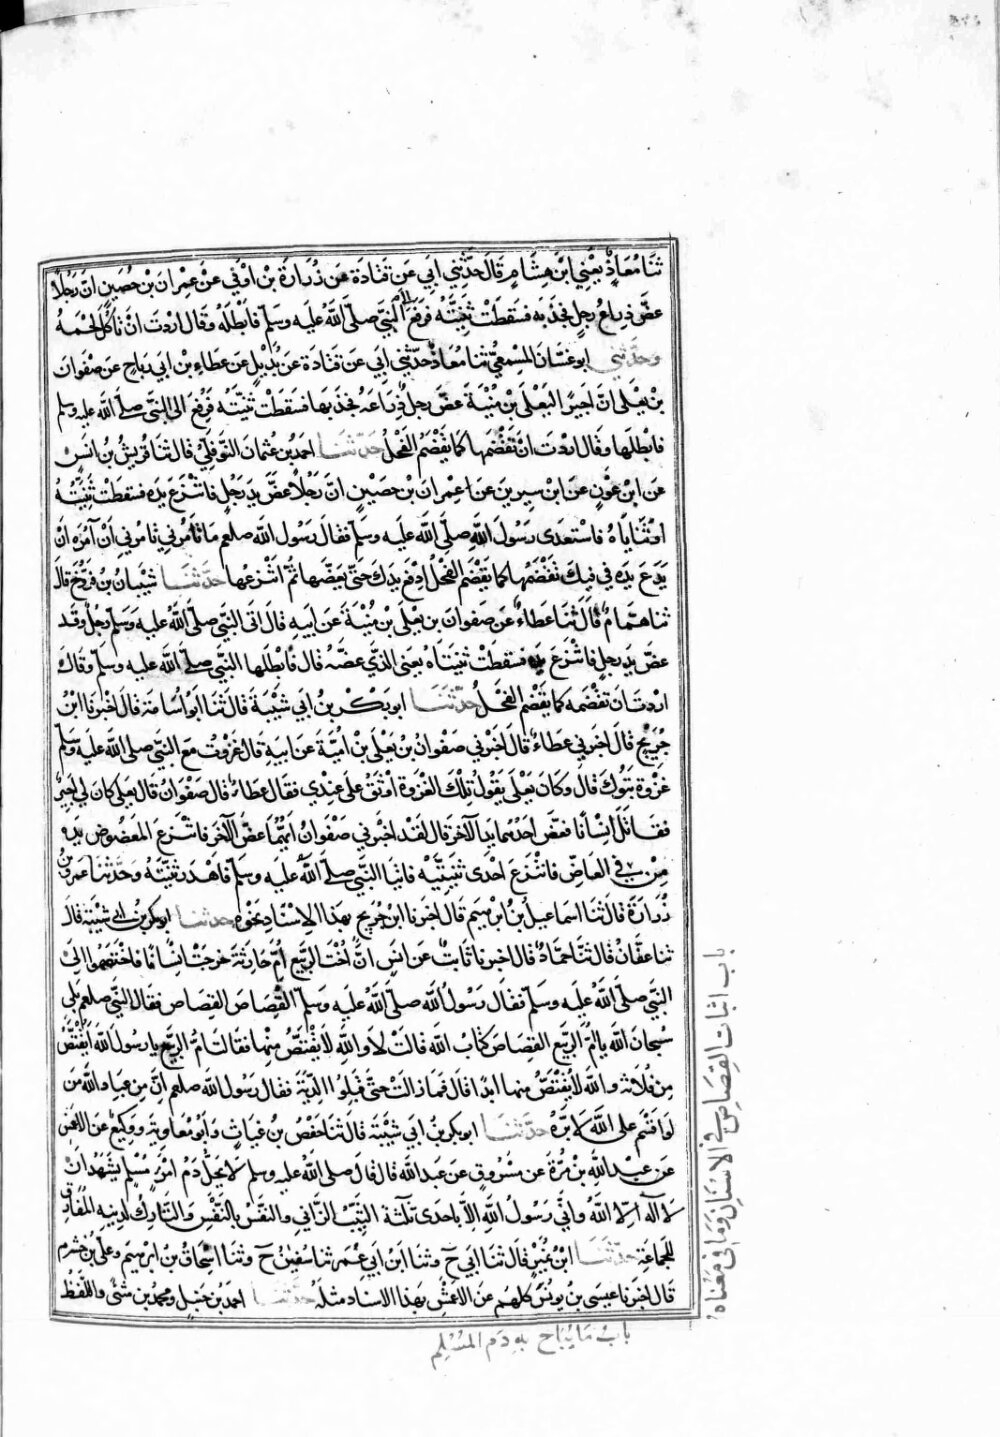 ثنا معاذ يعني ابن هشام قال حدثني ابي عن قتادة عن زرارة بن اوفى عن عمران بن حصين ان رجلا
عض ذراع رجل فجذبه فسقطت ثنيته فرفع الى النبي صلى الله عليه وسلم فابطله وقال اردت ان تاكل لحمه
وحدثني ابو غسان المسمعي ثنا معاذ حدثني ابي عن قتادة عن بديل عن عطاء بن ابي رباح عن صفوان
بن يعلى ان اجيرا ليعلى بن منية عض رجل ذراعه فجذبها فسقطت ثنيته فرفع الى النبي صلى الله عليه وسلم
فابطلها وقال اردت ان تقضمها كما يقضم الفحل حدثنا احمد بن عثمان النوفلي قال ثنا قريش بن انس
عن ابن عون عن ابن سيرين عن عمران بن حصين ان رجلا عض يد رجل فانتزع يده فسقطت ثنيته
او ثناياه فاستعدى رسول الله صلى الله عليه وسلم فقال رسول الله صلعم ما تأمرني تامرني ان آمره ان
يدع يده في فيك تقضمها كما يقضم الفحل ادفع يدك حتى يعضها ثم انتزعها حدثنا شيبان بن فروخ قال
ثنا همام قال ثنا عطاء عن صفوان بن يعلى بن منية عن ابيه قال اتى النبي صلى الله عليه وسلم رجل وقد
عض يد رجل فانتزع يده فسقطت ثنيتاه يعني الذي عضه قال فابطلها النبي صلى الله عليه وسلم وقال
اردت ان تقضمه كما يقضم الفحل حدثنا ابو بكر بن ابي شيبة قال ثنا ابو اسامة قال اخبرنا ابن
جريج قال اخبرني عطاء قال اخبرني صفوان بن يعلى بن امية عن ابيه قال غزوت مع النبي صلى الله عليه وسلم
غزوة تبوك قال وكان يعلى يقول تلك الغزوة اوثق على عندي فقال عطاء قال صفوان قال يعلى كان لي اجير
فقاتل انسانا فعض احدهما يد الآخر قال لقد اخبرني صفوان ايهما عض الآخر فانتزع المعضوض يده
من في العاض فانتزع احدى ثنيتيه فاتيا النبي صلى الله عليه وسلم فاهدر ثنيته وحدثنا عمرو بن
زرارة قال ثنا اسماعيل بن ابرهيم قال اخبرنا ابن جريج بهذا الاسناد نحوه حدثنا ابو بكر بن ابي شيبة قال
ثنا عفان قال ثنا حماد قال اخبرنا ثابت عن انس ان اخت الربيع ام حارثة جرحت انسانا فاختصموا الى
النبي صلى الله عليه وسلم فقال رسول الله صلى الله عليه وسلم القصاص القصاص فقال النبي صلعم
سبحان الله يا ام الربيع القصاص كتاب الله قالت لا والله لا يقتص منها فقالت ام الربيع يا رسول الله ايقتص
من فلانة والله لا يقتص منها ابدا قال فما زالت حتى قبلوا الدية فقال رسول الله صلعم ان من عباد الله من
لو اقسم على الله لابره حدثنا ابو بكر بن ابي شيبة قال ثنا حفص بن غياث وابو معاوية ووكيع عن الاعمش
عن عبد الله بن مرة عن مسروق عن عبد الله قال قال صلى الله عليه وسلم لا يحل دم امرئ مسلم يشهد ان
لا اله الا الله واني رسول الله الا باحدى ثلثة الثيب الزاني والنفس بالنفس والتارك لدينه المفارق
للجماعة حدثنا ابن نمير قال ثنا ابي ح وثنا ابن ابي عمر ثنا سفين ح وثنا اسحاق بن ابرهيم وعلى بن خشرم
قال اخبرنا عيسى بن يونس كلهم عن الاعمش بهذا الاسناد مثله حدثنا احمد بن حنبل ومحمد بن مثنى واللفظ
باب اثبات القصاص في الاسنان وما في معناه
باب ما يباح به دم المسلم